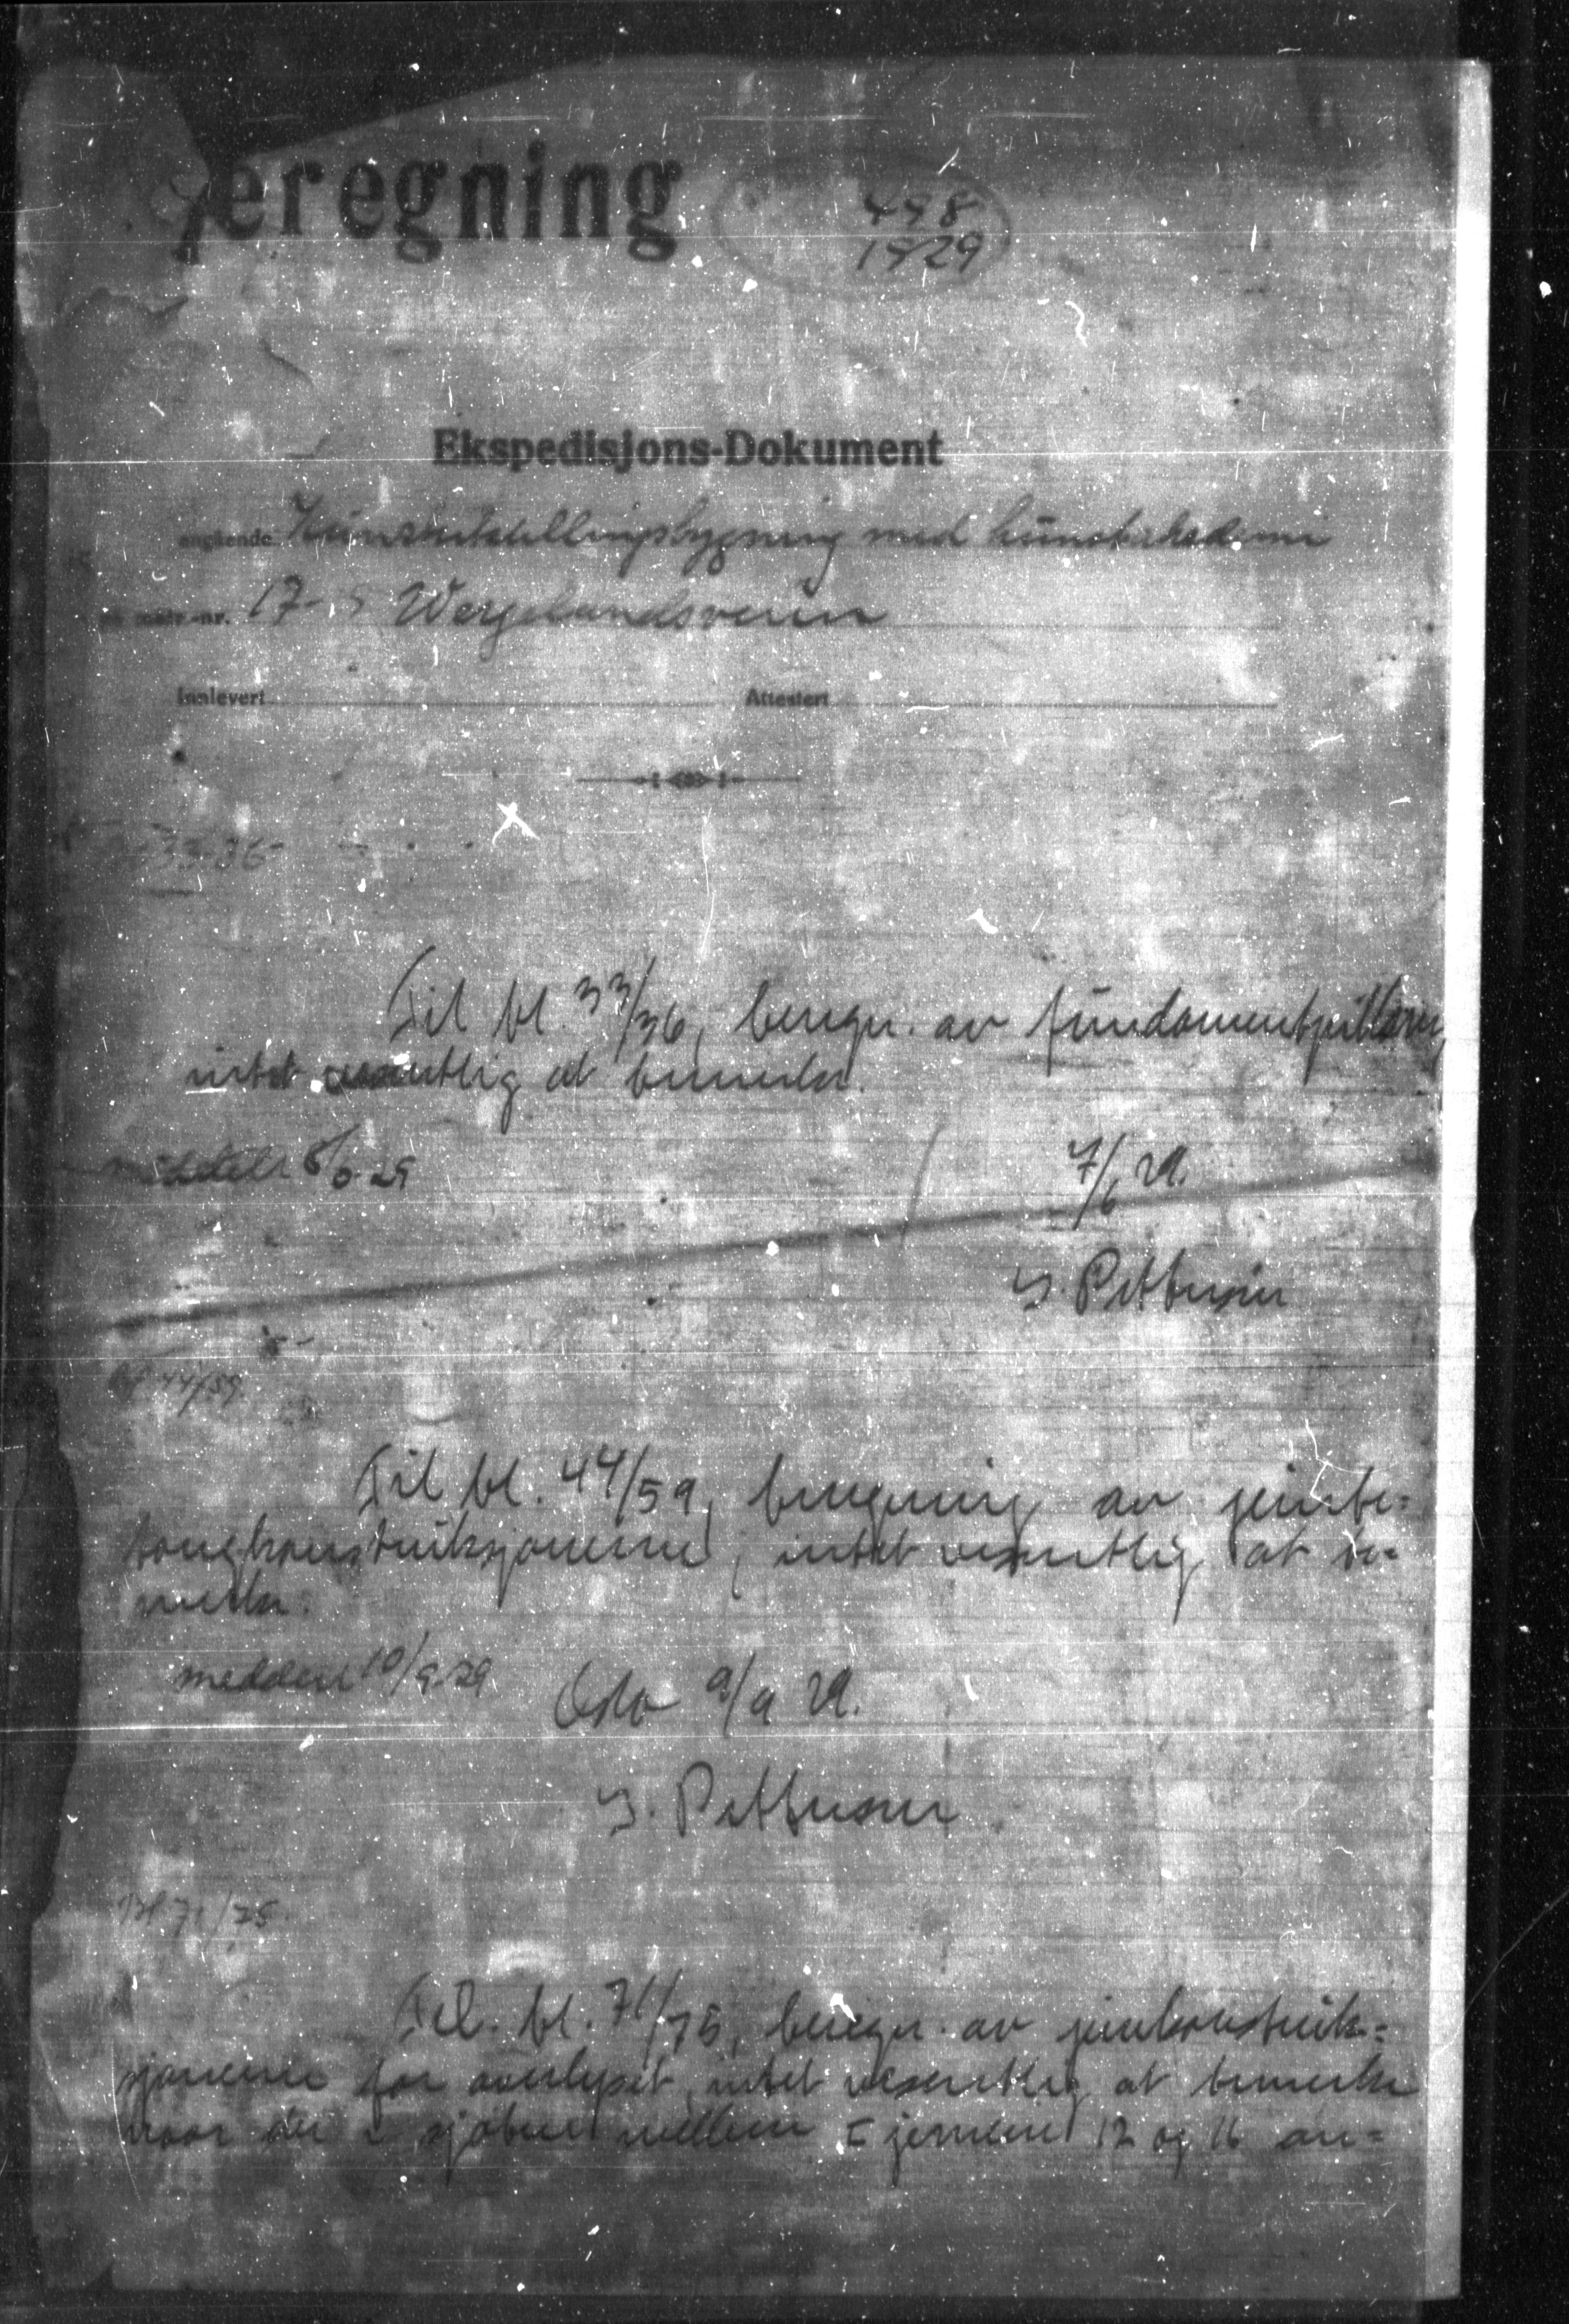 eregning
498
1929
Ekspedisjons-Dokument
angående: Kunstutstillingsbygning med kunstakademi
matr.-nr. 17- Wergelandsveien
Innlevert Attestert
33-36-
Til bl. 33/36, beregn. av fundamentpillarer,
intet vesentlig at bemerke.
7/6 29.
J. Pettersen
Bl 44/59.
Til bl. 44/59, beregning av jernbe=
tongkonstruksjonerne, intet vesentlig at be=
merke.
meddelt 10/9-29 Oslo 9/9 29.
J. Pettersen
Bl 71/75.
Til bl. 71/75, beregn. av jernkonstruk=
sjonerne for overlyset, intet vesentlig at bemerke
naar der i mellem jernene 12 og 16 an=